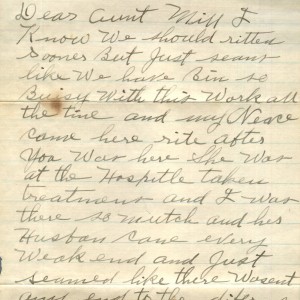 Dear Aunt Mill I
Know We should ritted
Sooner But Just seams
like We have Bin so
Buisy With this Work all
the time and my Neace
came here rite after
You Was here She Was
at the Hospitle taken
treatment and I was
there so mutch and her
Husban came every
Weak end and Just
seamed like there Wasent
any end to the